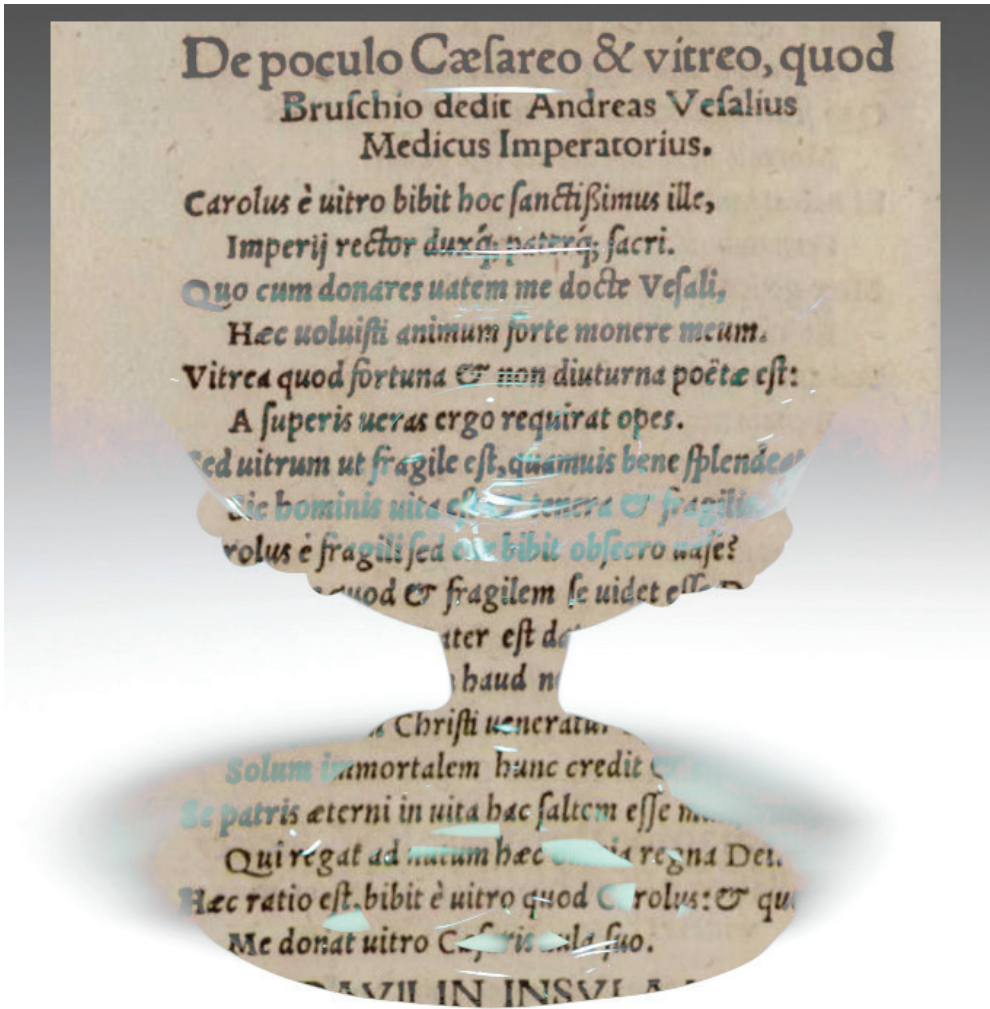 De poculo Cæſareo & vitreo, quod
Bruſchio dedit Andreas Veſalius
Medicus Imperatorius.
Carolus è uitro bibit hoc ſanctißimus ille,
Imperij rector duxq́; paterq́; ſacri.
Quo cum donares uatem me docte Veſali,
Hæc uoluiſti animum forte monere meum.
Vitrea quod fortuna & non diuturna poëtæ eſt:
A ſuperis ueras ergo requirat opes.
Sed uitrum ut fragile eſt, quamuis bene ſplendeat
Sic hominis uita eſt & tenera & fragilis
rolus è fragili ſed cur bibit obſecro uaſe?
quod & fragilem ſe uidet eſſe
eſt
haud
Chriſti ueneratur
Solum immortalem hunc credit &
Se patris æterni in uita hac ſaltem eſſe
Qui regat ad nutum hæc omnia regna Deus.
Hæc ratio eſt, bibit è uitro quod Carolus: &
Me donat uitro Cæſaris aula ſuo.
IN INSVLA